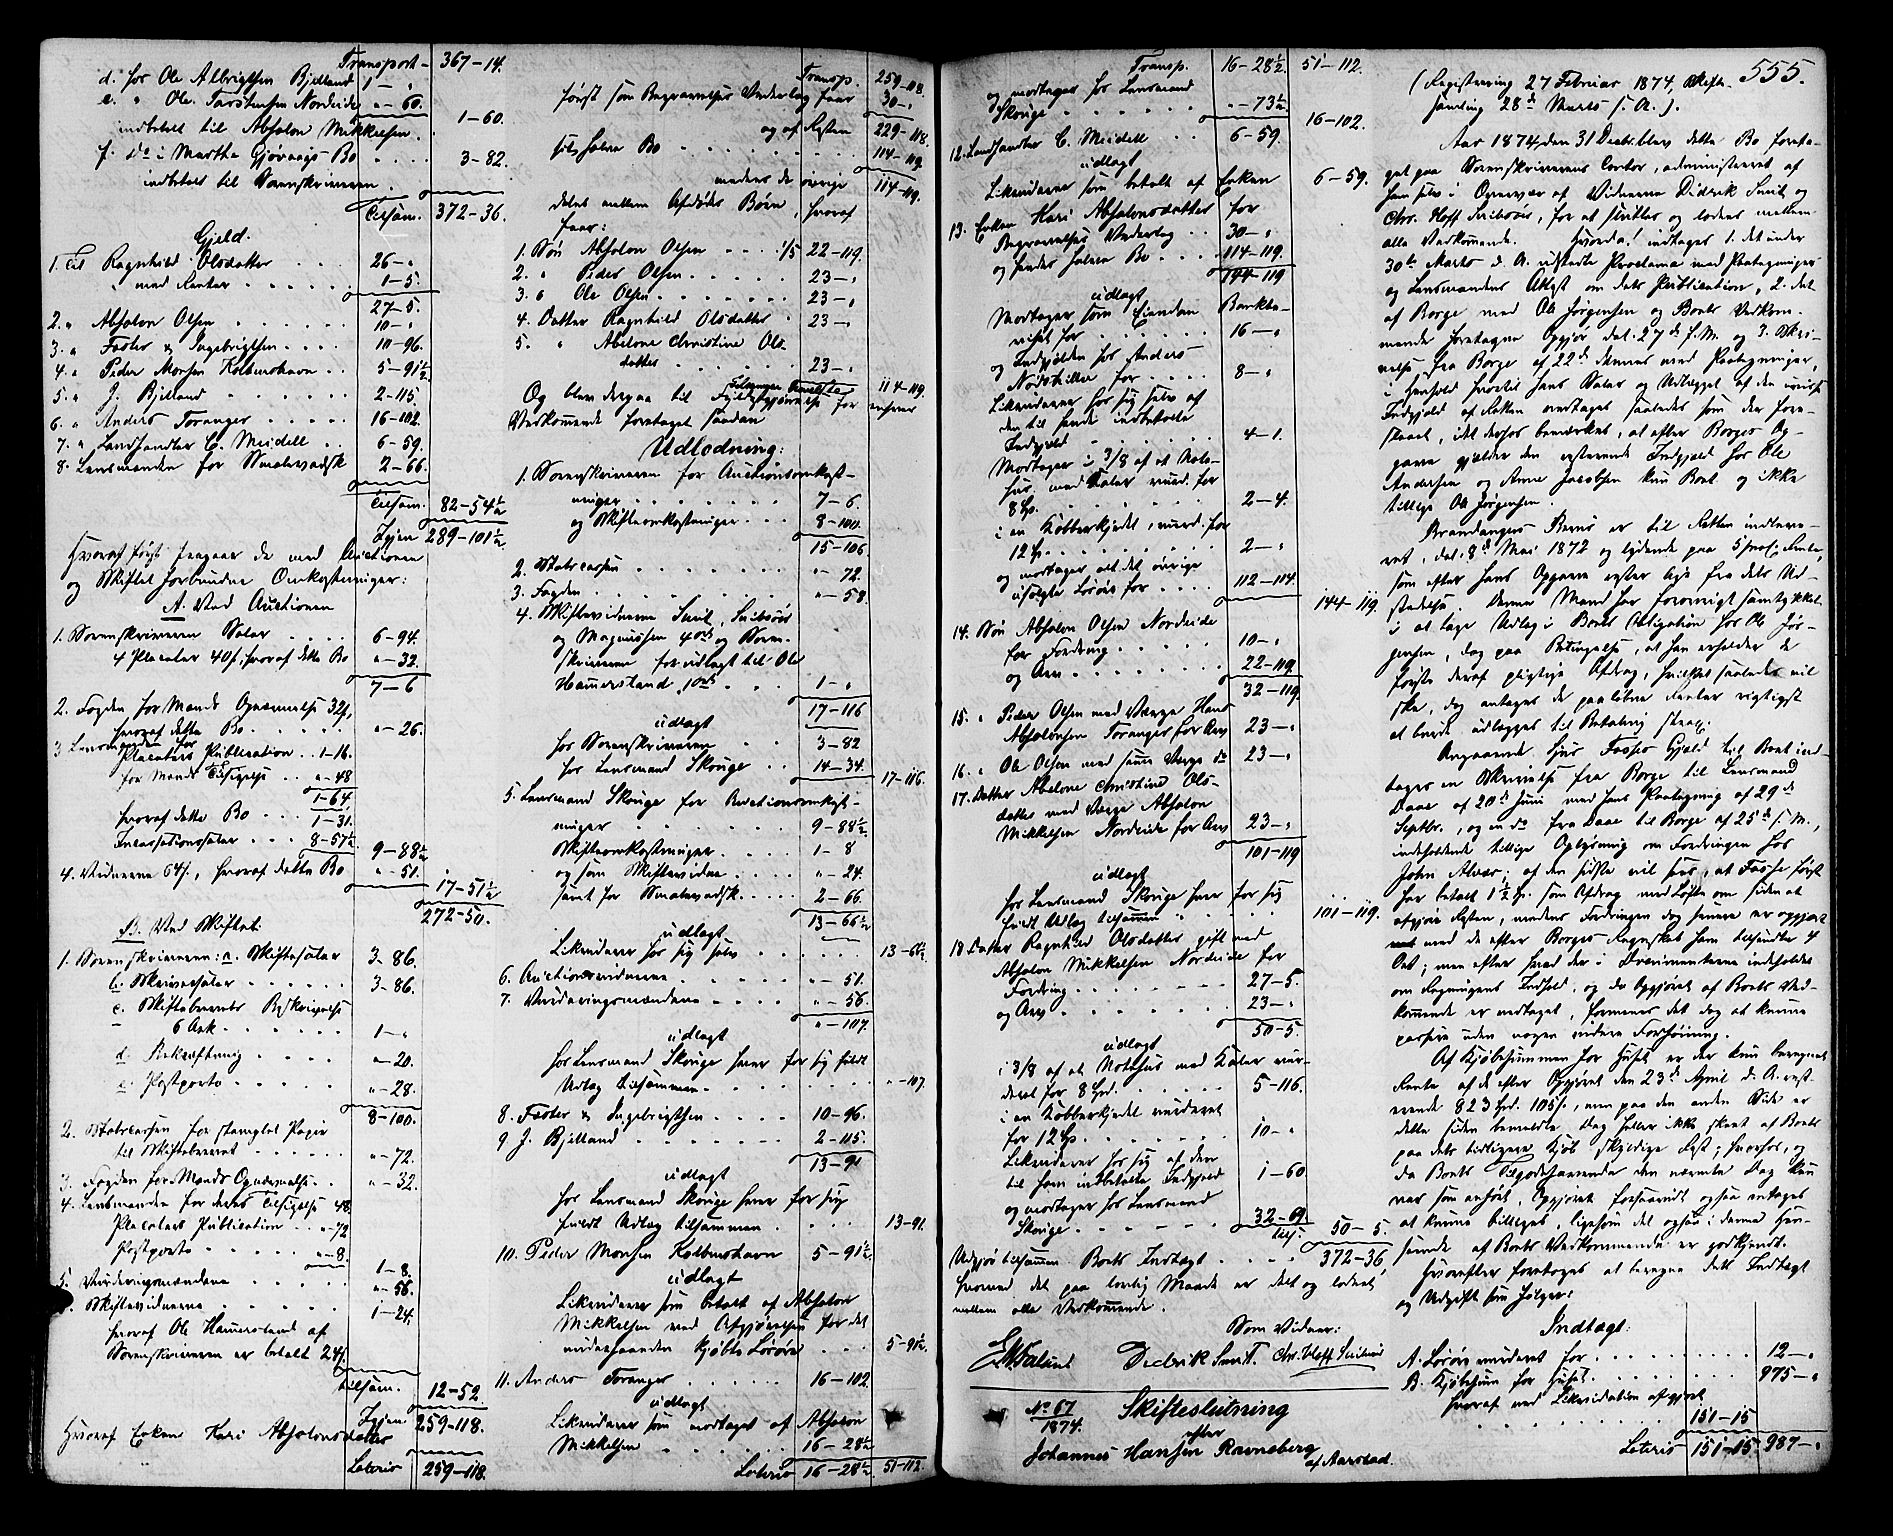 Transport - 367-14.
d. hos Ole Albrigtsen Bjelland 1-"
e. " Ole Torstensen Nordeide "-60.
indbetalt til Absalon Mikkelsen. 1-60.
f. do i Martha Gjøvaags Bo 3-82.
indbetalt til Sorenskriveren.
Tilsam. 372-36.
Gjeld.
1. Til Ragnhild Olsdatter 26-"
" med Renter 1-5.
27-5.
2. " Absalon Olsen 10-"
3. " Faster & Ingebrigtsen 10-96.
4. " Peder Monsen Kolbenshavn 5-91½
5. " J. Bjelland 2-115.
6. " Anders Toranger 16-102.
7. " Landhandler C. Meidell 6-59.
8. Lensmanden for 2-66.
Tilsam. 82-54½
Igjen 289-101½
Hvoraf først fragaar de med Auctionen
og Skiftet forbundne Omkostninger:
A. Ved Auctionen
1. Sorenskriveren Salar 6-94.
4 Placater 40 s, hvoraf dette Bo "-32.
7-6
2. Fogden for Mænds Opnævnelse 32 s,
hvoraf dette Bo "-26.
3. Lensmanden for
Placaters Publication 1-16.
for Mænds Tilsigelse "-48
1-64.
hvoraf dette Bo 1-31.
Incassationssalar 8-57½ 9-88½
4. Vidnerne 64 s, hvoraf dette Bo "-51.
17-51½
272-50.
B. Ved Skiftet.
1. Sorenskriveren: a. Skiftesalar 3-86.
b. Skriversalar 3-86.
c. Skiftebrevets Beskrivelse
6 Ark 1-"
d. Bekræftning "-20.
e. Postporto "-28.
8-100.
2. Statscassen for stemplet Papir
til Skiftebrevet "-72.
3. Fogden for Mænds Opnævnelse "-32.
4. Lensmanden for deres Tilsigelse 48.
Placaters Publication "-72
Postporto "-8.
1-8.
5. Vurderingsmændene "-56.
Skiftevidnerne 1-24.
hvoraf Ole Hamerstand af
Sorenskriveren er betalt 24 s.
tilsam. 12-52.
Igjen 259-118.
Hvoraf Enken Kari Absalonsdatter
Lateris 259-118.
Transp. 259-118.
først som Begravelses Vederlag faar 30-"
og af Resten 229-118.
sin halve Bo 114-119.
medens de øvrige 114-119.
deles mellem Afdødes Børn, hvoraf
faar:
1. Søn Absalon Olsen 1/5 22-119.
2. " Peder Olsen 23-"
3. " Ole Olsen 23-"
4. Datter Ragnhild Olsdatter 23-"
5. " Abelone Christine Ols-
datter 23-"
114-119.
Og blev derpaa til
Fyldestgjørelse for enhver
Vedkommende foretaget saadan
Udlodning:
1. Sorenskriveren for Auctionsomkost-
ninger 7-6.
og Skifteomkostninger 8-100.
15-106.
2. Statscassen "-72.
3. Fogden "-58.
4. Skiftevidnerne Smit, Seilsøs
og Magnussen 40 s og Soren-
skriveren for udlagt til Ole
Hamerstand 1-"
17-116
udlagt
hos Sorenskriveren 3-82
hos Lensmand Skouge 14-34.
17-116.
5. Lensmand Skouge for Auctionsomkost-
ninger 9-88½.
Skifteomkostninger 1-8
og som Skiftevidne "-24.
samt for 2-66.
13-66½
udlagt
Likviderer hos sig selv 13-66½
6. Auctionsvidnerne "-51.
7. Vurderingsmændene "-56.
"-107.
udlagt
hos Lensmand Skouge hver for sig fuldt
Udlæg tilsammen "-107.
8. Faster & Ingebrigtsen 10-96.
9. J. Bjelland 2-115.
13-91
udlagt
hos Lensmand Skouge hver for sig
fuldt Udlæg tilsammen 13-91.
10. Peder Monsen Kolbenshavn 5-91½
udlagt
Likviderer som betalt af Absalon
Mikkelsen ved Afgjørelsen for det
kjøbte Løsøre 5-91½.
11. Anders Toranger 16-102.
udlagt
Likviderer som modtaget af Absalon
Mikkelsen 16-28½
Lateris 16-28½ 51-112.
Transp. 16-28½ 51-112.
og modtager hos Lensmand
Skouge "-73½
16-102.
12. Landhandler C. Meidell 6-59.
udlagt
Likviderer som betalt af Enken 6-59.
13. Enken Kari Absalonsdatter for
Begravelses Vederlag 30-"
og hendes halve Bo 114-119.
144-119
udlagt
Modtager som Eiendom Bankbe-
viset for 16-"
og Indgjelden hos Anders
for 8-"
Likviderer hos sig selv af
den til hende indbetalte
Indgjeld 4-1.
Modtager i 3/8 af et Nøst-
hus med vurd. for
8 Sp. 2-4.
i en Kobberkjedel, vurd. for
12 Sp. 2-"
og modtager alt det øvrige
usolgte Løsøre for 112-114.
144-119.
14. Søn Absalon Olsen Nordeide
for Fordring 10-"
og Arv 22-119.
32-119.
15. " Peder Olsen med Værge Hans
Absalonsen Toranger for Arv 23-"
16. " Ole Olsen med samme Værge do 23-"
17. Datter Abelone Christine Ols-
datter med Værge Absalon
Mikkelsen Nordeide for Arv 23-"
101-119
udlagt
hos Lensmand Skouge hver for sig
fuldt Udlæg tilsammen 101-119.
18. Datter Ragnhild Olsdatter gift med
Absalon Mikkelsen Nordeide for
Fordring 27-5.
og Arv 23-"
50-5
udlagt
i 3/8 af et Nøsthus med vur-
deret for 8 Spd. 5-116.
i en Kobberkjedel vurderet
for 12 Sp. 10-"
Likviderer hos sig af den
til ham indbetalte Indgjeld 1-60
og modtager hos Lensmand
Skouge 32-69.
tils. 50-5.
Udgjør tilsammen Boets Indtægt 372-36
hvormed det paa lovlig Maade er delt og lodnet
mellem alle Vedkommende.
Som Vidner:
Didrik Smit. Chr. Hoff Seilsøs
No 67
1874.
Skifteslutning
efter
Johannes Hansen Ravneberg
af Aarstad.
555.
(Registrering 27 Februar 1874, Skifte-
samling 28de Marts s. A.).
Aar 1874, den 31 Decbr. blev dette Bo foreta-
get paa Sorenskriverens Contor, administreret af
ham selv i Overvær af Vidnerne Didrik Smit og
Chr. Hoff Seilsøs, for at sluttes og lodnes mellem
alle Vedkommende. Hvorda! indtages 1. det under
30te Marts d. A. udstedte Proclama med Paategninger
og Lensmandens Attest om dets Publication, 2. det
af Borge med Ole Jørgensen og Boets Vedkom-
mende foretagne Opgjør dat. 27de f. M. og 3. Skri-
velse fra Borge af 22de dennes med Paategninger,
i Henhold hvortil hans Salar og Udlæggel af den usikre
Indgjeld af Retten ansættes saaledes som der fore-
slaaet, idet derhos bemærkes, at efter Borges Op-
gave gjælder den resterende Indgjeld hos Ole
Andersen og Anna Jacobsen kun Boet og ikke
tillige Ole Jørgensen.
Brandanger's Bevis er til Retten indleve-
ret, dat. 8de Mai 1872 og lydende paa 5 pro C. Rente,
som efter hans Opgave rester lige fra dets Ud-
stedelse. Denne Mand har forøvrigt samtykket
i at tage Udlæg i Boets Obligation hos Ole Jør-
gensen, dog paa Betingelse, at han erholder de
første deraf pligtige Afdrag, hvilket saaledes vil
ske, dog antages de paaløbne Renter rigtigst
at burde udlægges til Betaling strax.
Angaaende Fosses Gjeld til Boet ind-
tages en Skrivelse fra Borge til Lensmand
Daae af 20de Juni med hans Paategning af 29de
Septbr., og en do fra Daae til Borge af 25de s. M.,
indeholdende tillige Oplysning om Fordringen hos
John Alver; af den sidste vil sees, at Fosse først
har betalt 1½ Sp. som Afdrag med Løfte om siden at
afgjøre Resten, medens Fordringen dog senere er opgjort
med de efter Borges Regnskab ham tilsendte 4
Ort; men efter hvad der i Documenterne indeholdes
om Regningens Indhold, og da Opgjøret af Boets Ved-
kommende er vedtaget, formenes det dog at kunne
passere uden nogen videre Forhøining.
Af Kjøbesummen for Huset er der kun beregnet
Rente af de efter Opgjøret den 23de April d. A. rest-
erende 823 Spd. 105 s., men paa den anden Side er
dette siden bemeldte Dag heller ikke skeet af Boets
paa dets tidligere Kjøb skyldige Rest; hvorfor, og
da Boets Tilgodehavende den nævnte Dag kun
var som anført, Opgjøret forsaavidt ogsaa antages
at kunne billiges, ligesom det ogsaa i denne Hen-
seende af Boets Vedkommende er godkjendt.
Hvorefter foretoges at beregne dette Indtægt
og Udgift som følger:
Indtægt:
A. Løsøre vurderet for 12-"
B. Kjøbesum for Huset 975-"
hvoraf ved Likvidation afgjort
151-15
Lateris 151-15 987-"